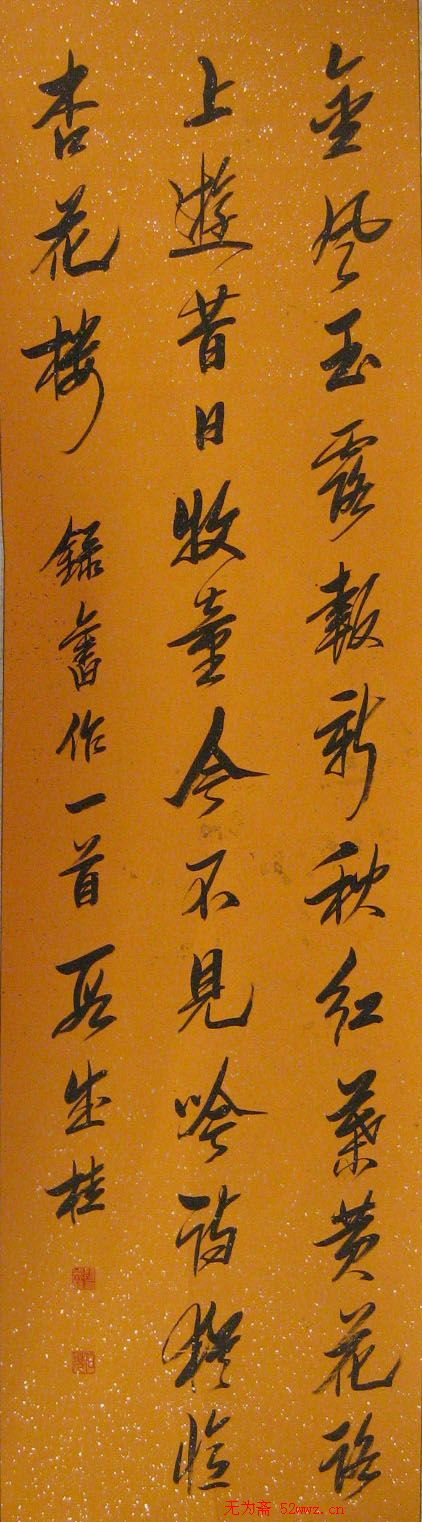 金風玉露報新秋紅葉黄花路
上遊昔日牧童今不見吟詩獨憶
杏花樓
錄舊作一首 成桂
无为斋 52wwz.cn